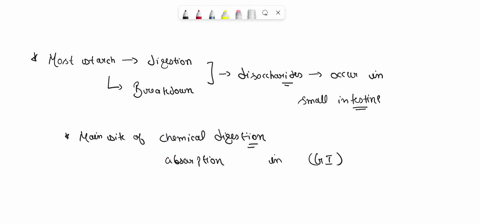 * Most starch → digestion
↳ Breakdown ] → disaccharides → occur in
small intestine
* Main site of chemical digestion
absorption in (GI)